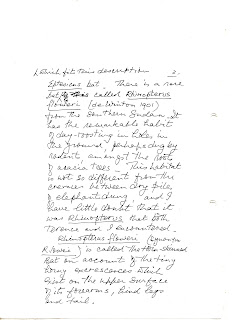 which fits this description 2.
Eptesicus bat. There is a rare
bat called Rhinopterus
floweri (de Winton 1901)
from the Southern Sudan. It
has the remarkable habit
of day-roosting in holes in
the ground, perhaps dug by
rodents amongst the roots
of acacia trees. This habitat
is not so different from the
crevices between dry piles
of elephant dung. And I
have little doubt that it
was Rhinopterus that both
Terence and I encountered.
Rhinopterus floweri (synonym
R. lowei) is called the Horn-skinned
Bat on account of the tiny
horny excrescences which
exist on the upper surface
of its forearms, hind legs
and tail.